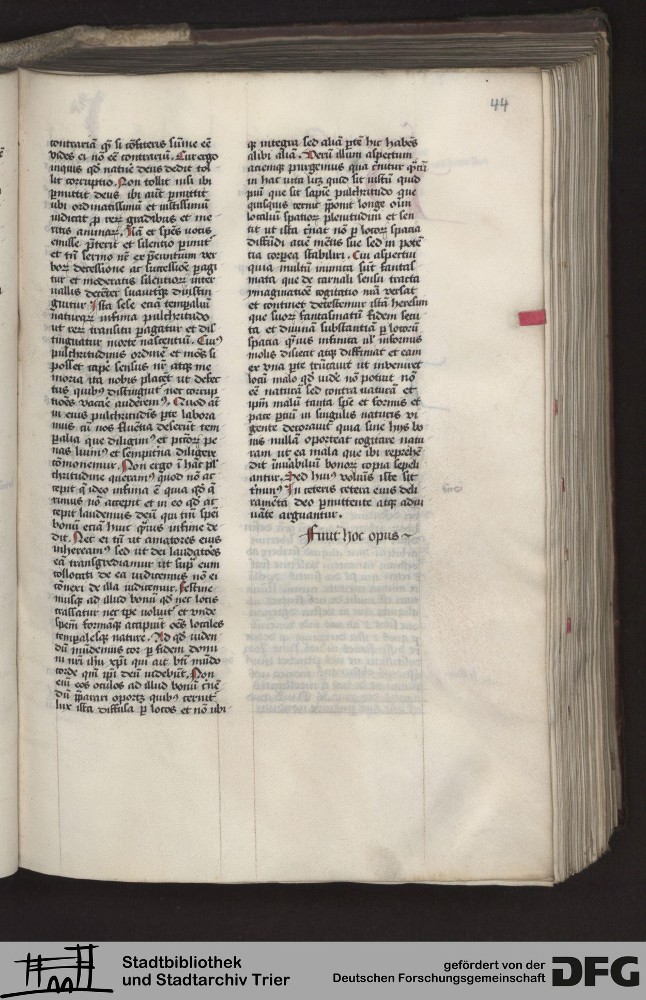 44
contrariā
vides ei nō eē contrariū. Cur ergo
inquis qd nature deus dedit tol
lit corruptio. Non tollit nisi ubi
pmittit deus ibi aut pmittit
ubi ordinatissimū et iustissimū
iudicat p rerr gradibus et me
ritis animarr. Nā et spēs vocis
emisse pterit et silentio
et tn sermo nr ex
borr decessione ac successiōe pagi
tur et moderatis silentiorr inter
vallis decēter suauitqz distin
guitur. Ista sese etiā tempaliū
naturarr infima pulchritudo
ut rerr transitu pagatur et dis
tinguatur morte nascentiū. Cuiꝰ
pulchritudinis ordinē et modū si
posset capē sensus nr atqz me
moria ita nobis placēt ut defec
tus quibꝰ distinguit nec corrup
tiōes vocare auderemꝰ. Quod at
in eius pulchritudīs pte labora
mus cū nos fluētia deserūt tem
palia que diligimꝰ et pctorr pe
nas luimꝰ et sempitna diligere
cōmonemur. Non ergo i hac pl
chritudine queramꝰ quod nō ac
cepit q ideo infima ē quia qd q
rimus nō accepit et in eo qd ac
cepit laudemus deū qui tm speī
bonū etiā huic qmuis infime de
dit. Nec ei tn ut amatores eius
inhereamꝰ sed ut dei laudatoēs
eā transgrediamur ut supra eum
collocati de ea iudicemus nō ei
cōnexi de illa iudicemur. Festine
musqz ad illud bonū qd nec locis
crassatur nec tpe voluit et unde
speīm formāqz accipiūt oēs locales
tempalesqz nature. Ad qd viden
dū mūdemus cor p fidem domi
ni nri ihu xpi qui ait bti mūdo
corde qm ipi deū videbūt. Non
eim eos oculos ad illud bonū cnē
dū pparari oportz quibꝰ cernit
lux ista diffusa p locos et nō ubi
qz integra sed aliā ptē hic habēs
alibi aliā. Verū illum aspectum
aciemqz purgemus qua cnitur qtū
in hac vita licz quid sit iustū quid
piū que sit sapie pulchritudo que
quisquis cernit pponit longe oim
localiū spatiorr plenitudini et sen
tit ut ista cnat nō p locorr spacia
diffūdi aciē mētis sue sed in potē
tia corpea stabiliri. Cui aspectui
quia multū inimica sūt fantas
mata que de carnali sensu tracta
ymaginariēe cogitatio nra versat
et continet detestemur istā heresim
que suorr fantasmatū fidem secu
ta et diuinā substantiā p locorū
spacia qmuis infinita ul informis
molis disiecit atqz diffūmat et eam
ex una pte trūcauit ut inveniret
locū malo qd vide nō potuit nō
eē naturā sed contra naturā et
ipm malū tanta spē et formis et
pace ptiū in singulis naturis vi
gente decorauit quia sine hiis bo
nis nullā oporteat cogitare natu
ram ut ea mala que ibi reprehē
dit inuabiliū bonorr copia sepeli
antur. Sed huiꝰ volumīs iste sit
tminꝰ In ceteris cetera eius deli
ramēta deo pmittente atqz adiu
uāte arguantur.
Finit hoc opus
Stadtbibliothek
und Stadtarchiv Trier
gefördert von der
Deutschen Forschungsgemeinschaft
DFG